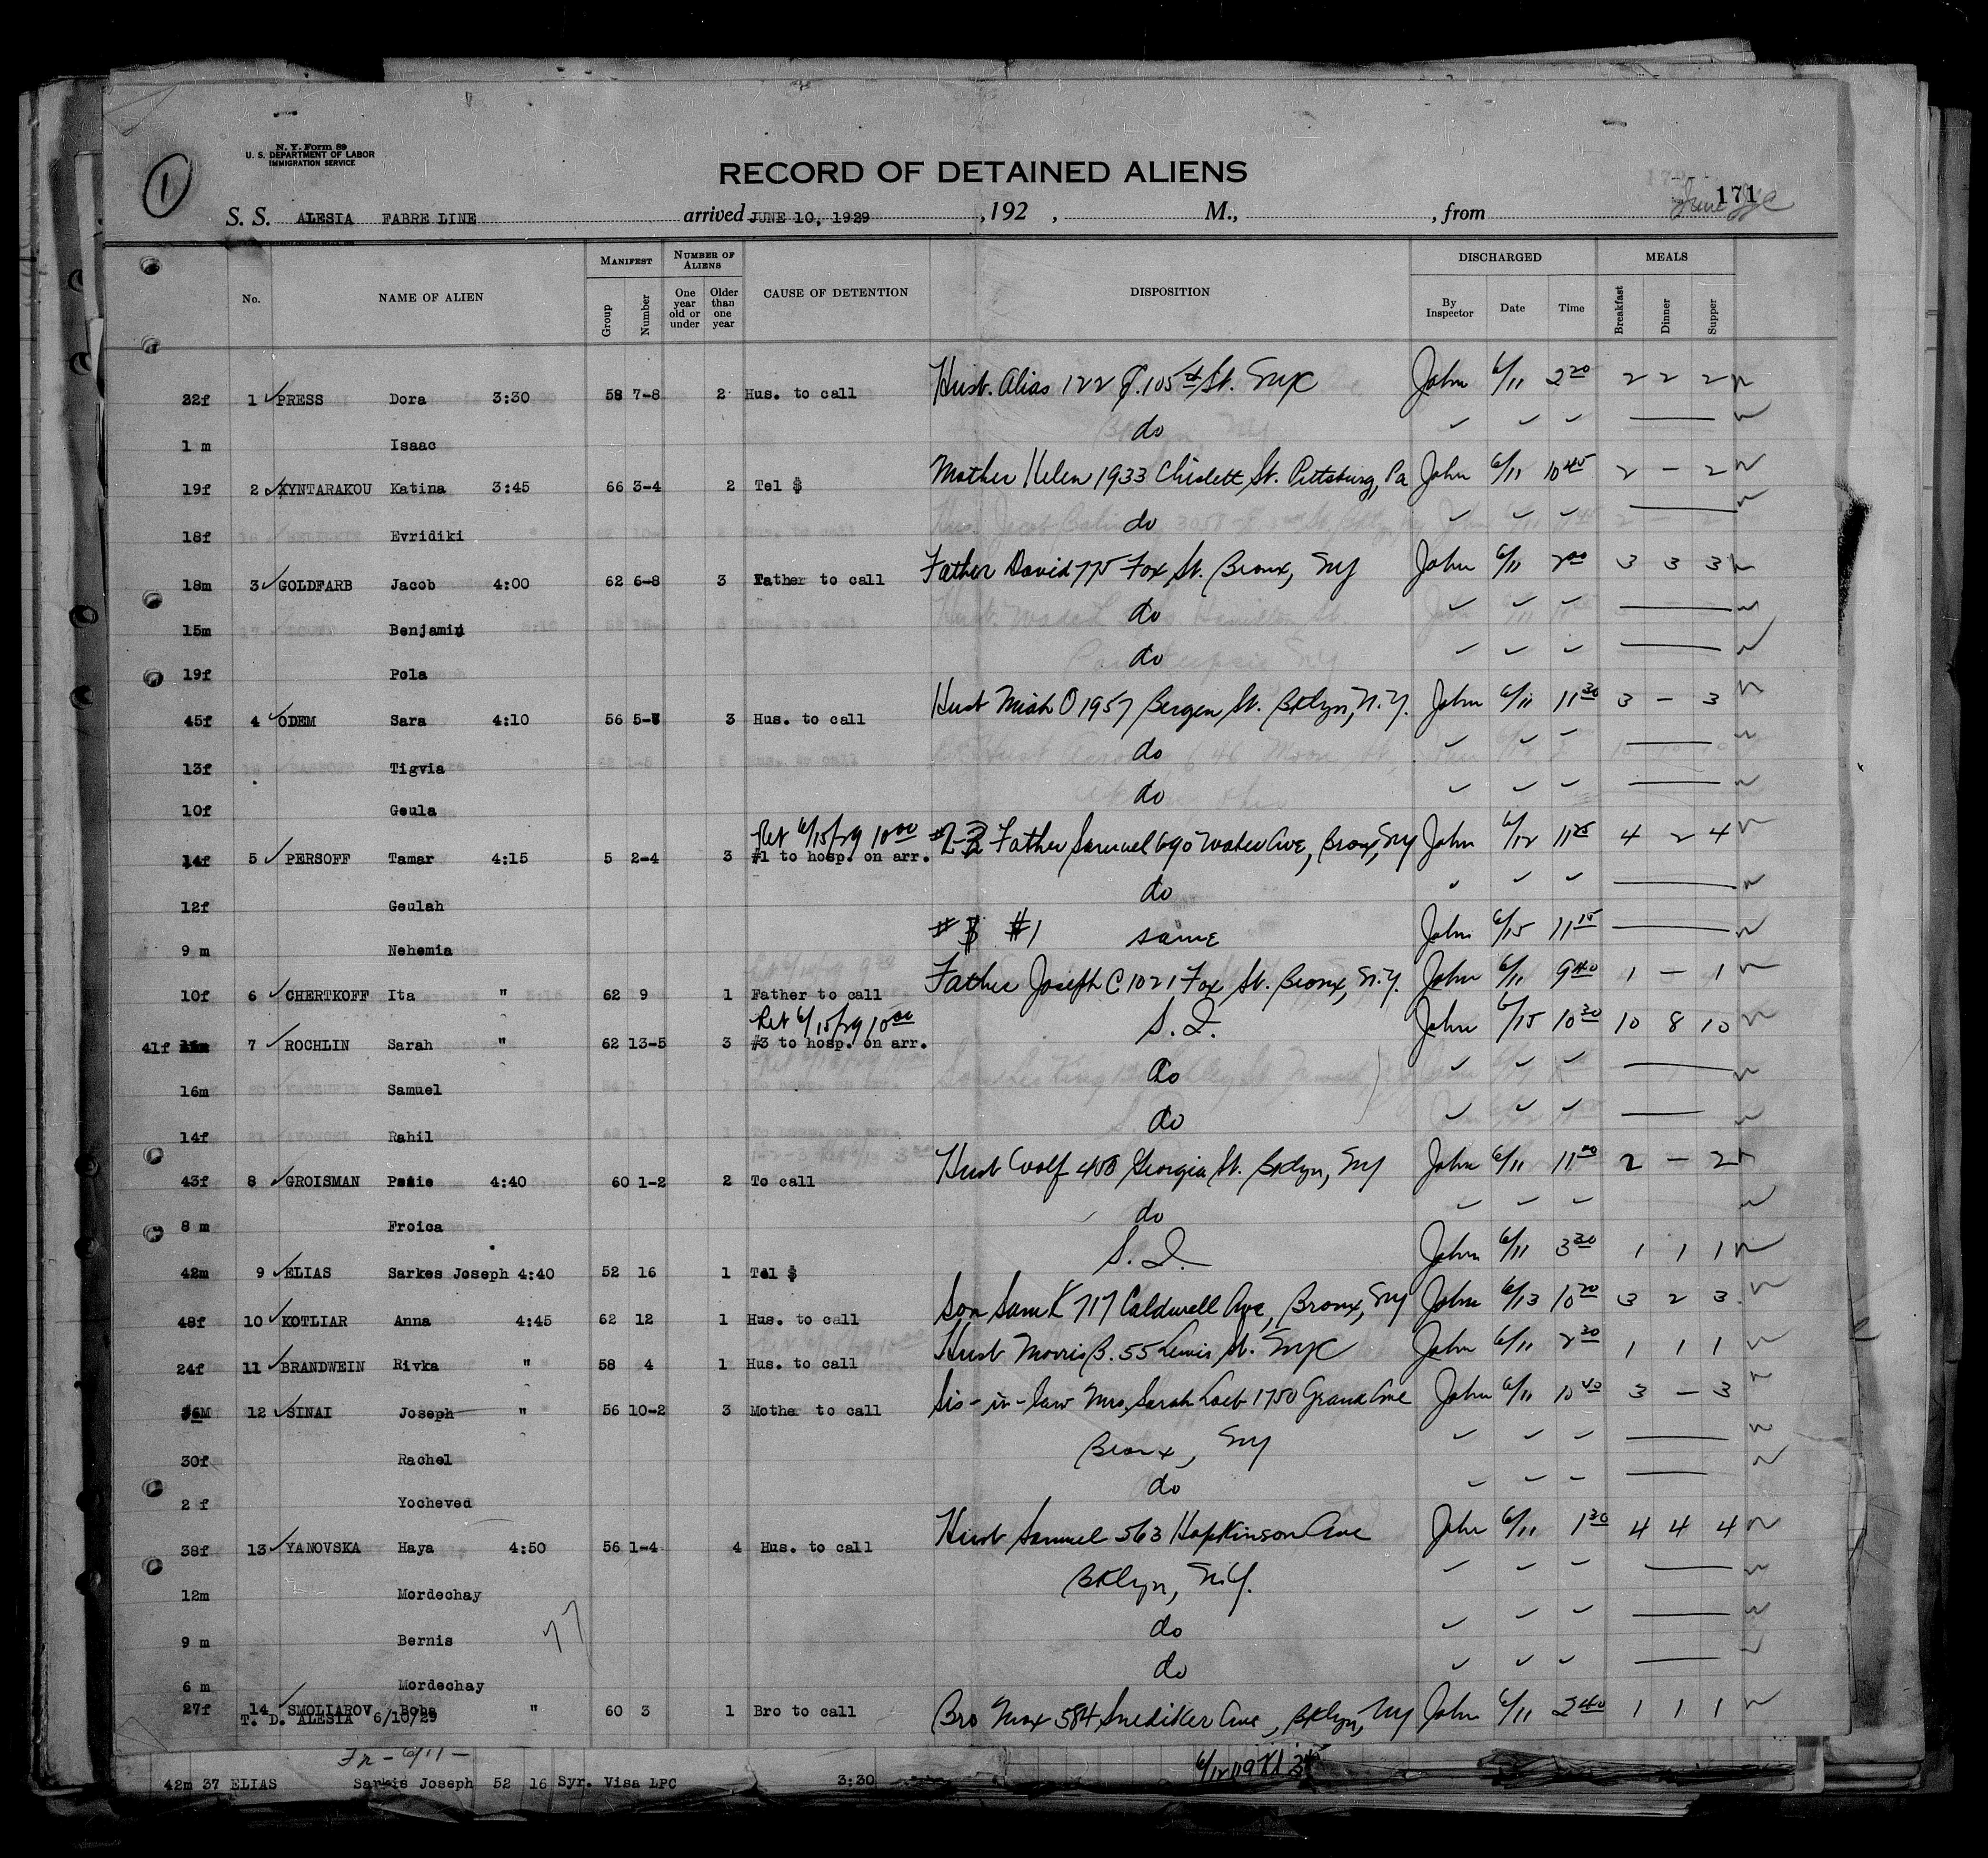 1
N. Y. Form 89
U. S. DEPARTMENT OF LABOR
IMMIGRATION SERVICE
RECORD OF DETAINED ALIENS
171
S. S. ALESIA FABRE LINE arrived JUNE 10, 1929 , 192 , M., , from
No. NAME OF ALIEN MANIFEST Group Number NUMBER OF ALIENS One year old or under Older than one year CAUSE OF DETENTION DISPOSITION DISCHARGED By Inspector Date Time MEALS Breakfast Dinner Supper
32f 1 PRESS Dora 3:30 58 7-8 2 Hus. to call Husb. Alias 122 E. 105th St. NYC John 6/11 2 20 2 2 2
1 m Isaac do
19f 2 XYNTARAKOU Katina 3:45 66 3-4 2 Tel $ Mother Helen 1933 Chislett St. Pittsburg, Pa John 6/11 10 45 2 - 2
18f Evridiki do
18m 3 GOLDFARB Jacob 4:00 62 6-8 3 Father to call Father David 775 Fox St. Bronx, NY John 6/11 2 00 3 3 3
15m Benjamin do
19f Pola do
45f 4 ODEM Sara 4:10 56 5-7 3 Hus. to call Husb Mish O 1957 Bergen St. Bklyn, N.Y. John 6/11 11 30 3 - 3
13f Tigvia do
10f Geula do
Ret 6/15/29 10 00
14f 5 PERSOFF Tamar 4:15 5 2-4 3 #1 to hosp. on arr. Father Samuel 690 Ave, Bronx, NY John 6/12 11 25 4 2 4
12f Geulah do
9 m Nehemia #1 same John 6/15 11 15
10f 6 CHERTKOFF Ita " 62 9 1 Father to call Father Joseph C 1021 Fox St. Bronx, N.Y. John 6/11 9 40 1 - 1
Ret 6/15/29 10 00
41f 7 ROCHLIN Sarah " 62 13-5 3 #3 to hosp. on arr. S. I. John 6/15 10 30 10 8 10
16m Samuel do
14f Rahil do
43f 8 GROISMAN Pesie 4:40 60 1-2 2 To call Husb Wolf 458 Georgia St. Bklyn, NY John 6/11 11 00 2 - 2
8 m Froica do
42m 9 ELIAS Sarkes Joseph 4:40 52 16 1 Tel $ S. I. John 6/11 3 30 1 1 1
48f 10 KOTLIAR Anna 4:45 62 12 1 Hus. to call Son Sam K 717 Caldwell Ave, Bronx, NY John 6/13 10 20 3 2 3
24f 11 BRANDWEIN Rivka " 58 4 1 Hus. to call Husb Morris B. 55 Lewis St. NYC John 6/11 2 30 1 1 1
36M 12 SINAI Joseph " 56 10-2 3 Mother to call Sis-in-law Mrs. Sarah Loeb 1750 Grand Ave John 6/11 10 40 3 - 3
30f Rachel Bronx, NY
2 f Yocheved do
38f 13 YANOVSKA Haya 4:50 56 1-4 4 Hus. to call Husb Samuel 563 Hopkinson Ave John 6/11 1 30 4 4 4
12m Mordechay Bklyn, N.Y.
9 m Bernis do
6 m Mordechay do
27f 14 SMOLIAROV Boba " 60 3 1 Bro to call Bro Max 584 Snediker Ave, Bklyn, NY John 6/11 2 40 1 1 1
T. D. ALESIA 6/10/29
77
42m 37 ELIAS Sarkis Joseph 52 16 Syr. Visa LPC 3:30